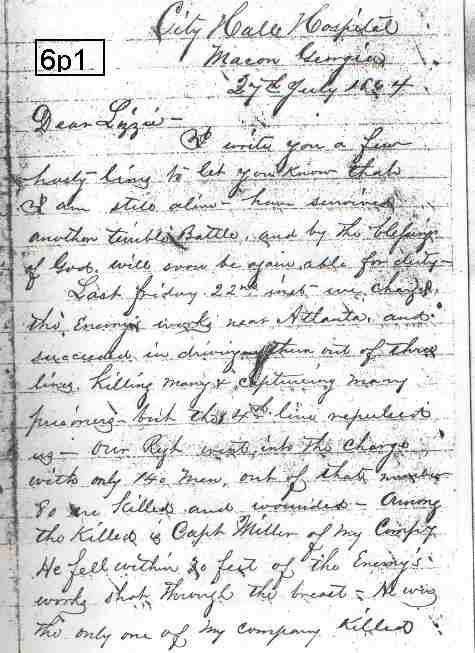 City Hall Hospital
6p1
Macon Georgia
27th July 1864
Dear Lizzie -
I write you a few
hasty lines to let you know that
I am still alive - have survived
another terrible Battle, and by the blessing
of God, will soon be again able for duty -
Last friday 22nd inst we charged
the Enemys works near Atlanta, and
succeeded in driving them out of three
lines, Killing many & capturing many
prisoners - but the 4th line repulsed
us - Our Regt went into the charge
with only 140 men, out of that number
80 are Killed and wounded - Among
the Killed is Capt Miller of my Compy
He fell within 20 feet of the Enemy's
works shot through the breast - He was
the only one of my company Killed